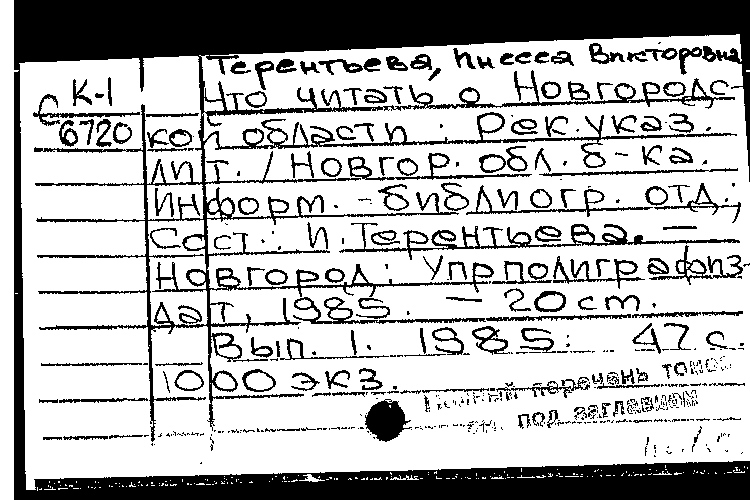 Терентьева, Инесса Викторовна
С К-1
6720
Что читать о Новгородс-
кой области : Рек. указ.
лит. / Новгор. обл. б-ка.
Информ. - библиогр. отд.;
Сост.: И. Терентьева. —
Новгород: Упрполиграфиз-
дат, 1985. — 20 cm.
Вып. 1. 1985. 47 с.
1000 экз.
Полный перечень томов
см. под заглавием